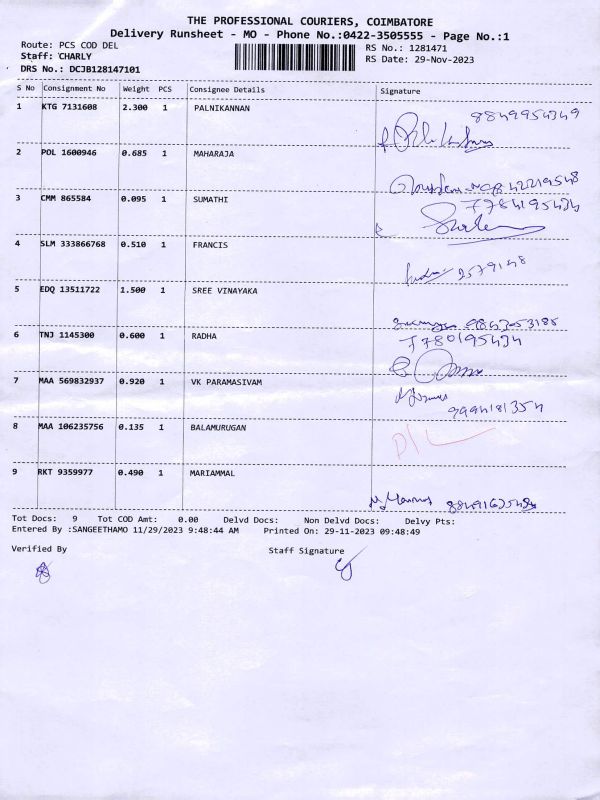 THE PROFESSIONAL COURIERS, COIMBATORE
Delivery Runsheet - MO - Phone No.:0422-3505555 - Page No.:1
Route: PCS COD DEL
RS No.: 1281471
Staff: CHARLY
RS Date: 29-Nov-2023
DRS No.: DCJB128147101
S No Consignment No Weight PCS Consignee Details Signature
1 KTG 7131608 2.300 1 PALNIKANNAN 8849954349
2 POL 1600946 0.685 1 MAHARAJA
3 CMM 865584 0.095 1 SUMATHI 7784195434
4 SLM 333866768 0.510 1 FRANCIS
5 EDQ 13511722 1.500 1 SREE VINAYAKA
6 TNJ 1145300 0.600 1 RADHA 7780195434
7 MAA 569832937 0.920 1 VK PARAMASIVAM
8 MAA 106235756 0.135 1 BALAMURUGAN D/L
9 RKT 9359977 0.490 1 MARIAMMAL
Tot Docs: 9 Tot COD Amt: 0.00 Delvd Docs: Non Delvd Docs: Delvy Pts:
Entered By :SANGEETHAMO 11/29/2023 9:48:44 AM Printed On: 29-11-2023 09:48:49
Verified By Staff Signature